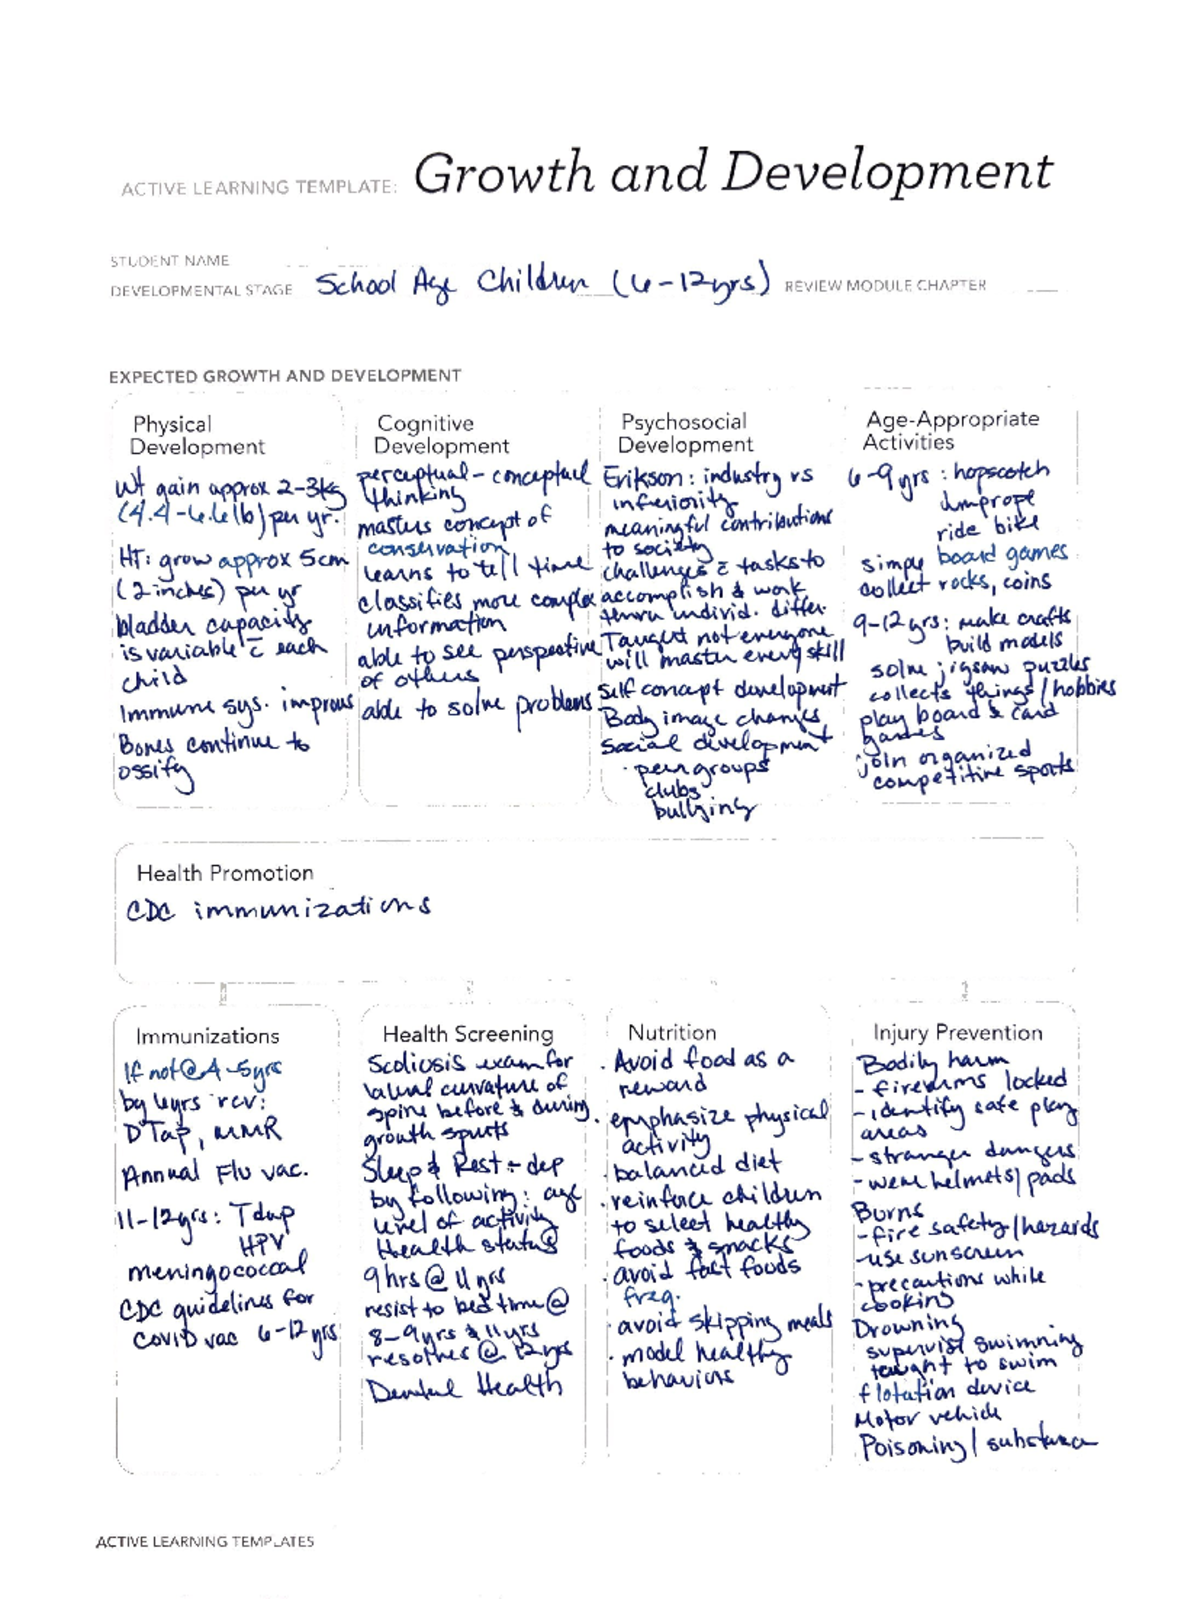 ACTIVE LEARNING TEMPLATE: Growth and Development
STUDENT NAME
DEVELOPMENTAL STAGE School Age Children (6-12yrs) REVIEW MODULE CHAPTER
EXPECTED GROWTH AND DEVELOPMENT
Physical
Development
Wt gain approx 2-3kg
(4.4-6.6lb) per yr.
HT: grow approx 5cm
(2 inches) per yr
bladder capacity
is variable c̄ each
child
Immune sys. improves
Bones continue to
ossify
Cognitive
Development
perceptual - conceptual
thinking
masters concept of
conservation
learns to tell time
classifies more complex
information
able to see perspective
of others
able to solve problems
Psychosocial
Development
Erikson: industry vs
inferiority
meaningful contributions
to society
challenges c̄ tasks to
accomplish & work
thru individ. differ.
Taught not everyone
will master every skill
Self concept development
Body image changes
Social development
· peer groups
clubs
bullying
Age-Appropriate
Activities
6-9yrs: hopscotch
jumprope
ride bike
simple board games
collect rocks, coins
9-12yrs: make crafts
build models
solve jigsaw puzzles
collects things/hobbies
play board & card
games
join organized
competitive sports
Health Promotion
CDC immunizations
Immunizations
If not @ 4-5yrs
by 6yrs rcv:
DTap, MMR
Annual Flu vac.
11-12yrs: Tdap
HPV
meningococcal
CDC guidelines for
COVID vac 6-12yrs
Health Screening
Scoliosis exam for
lateral curvature of
spine before & during
growth spurts
Sleep & Rest - dep
by following: age
level of activity
Health status
9hrs @ 11yrs
resist to bedtime @
8-9yrs & 11yrs
resolves @ 12yrs
Dental Health
Nutrition
· Avoid food as a
reward
· emphasize physical
activity
· balanced diet
· reinforce children
to select healthy
foods & snacks
· avoid fast foods
freq.
· avoid skipping meals
· model healthy
behaviors
Injury Prevention
Bodily harm
- firearms locked
- identify safe play
areas
- stranger dangers
- wear helmets/pads
Burns
- fire safety/hazards
- use sunscreen
- precautions while
cooking
Drowning
supervise swimming
taught to swim
flotation device
Motor vehicle
Poisoning/substance
ACTIVE LEARNING TEMPLATES